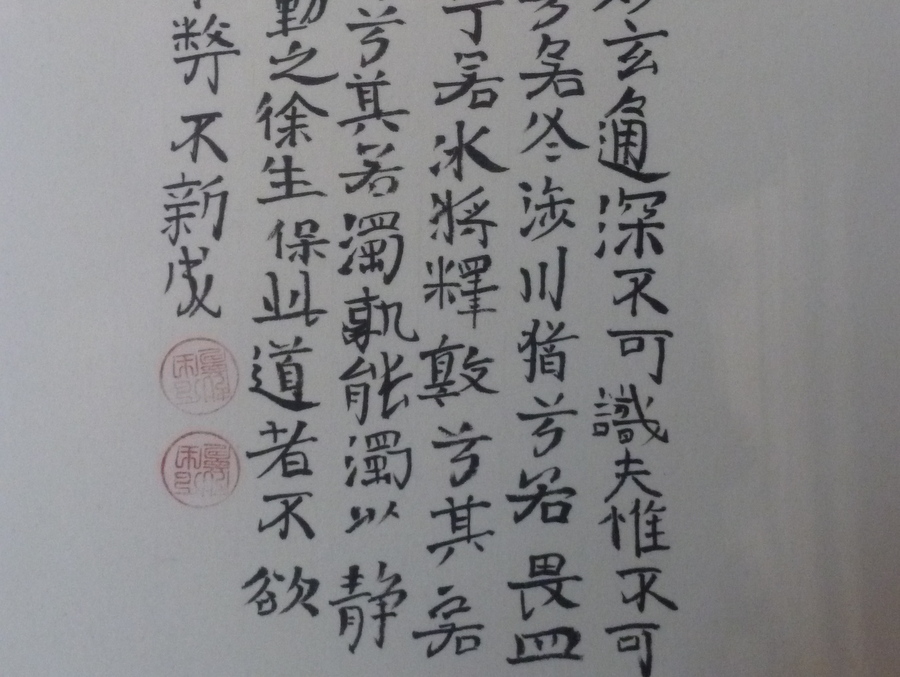 玄通深不可識夫惟不可
兮若冬涉川猶兮若畏四
若冰將釋敦兮其若
兮其若濁孰能濁以静
動之徐生保此道者不欲
弊不新成